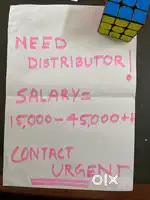 NEED
DISTRIBUTOR!
SALARY=
15,000-45,000++
CONTACT
URGENT
olx